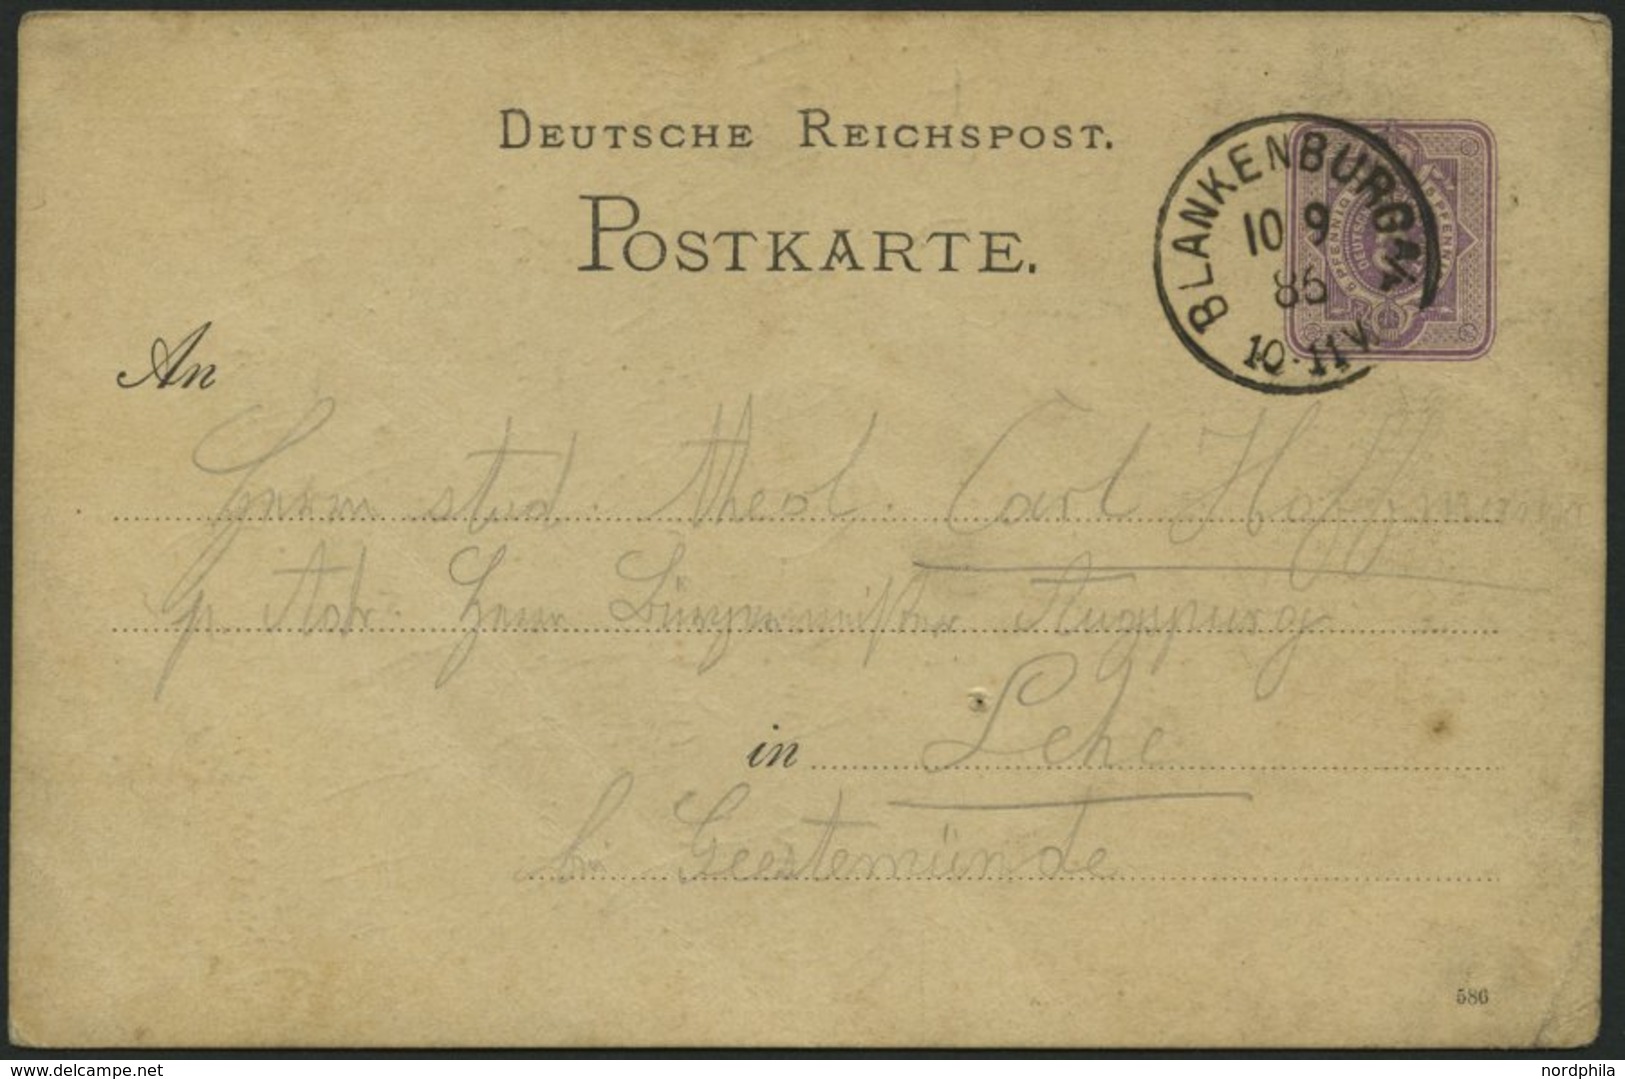 DEUTSCHE REICHSPOST.
POSTKARTE.
BLANKENBURG
10 9
86
10-11V.
5 PFENNIG
An
Herrn stud. theol. Carl Hoffmann
p. Adr. Herrn Bürgermeister Augspurg
in Lehe
bei Geestemünde
586
delcampe.net
nordphila